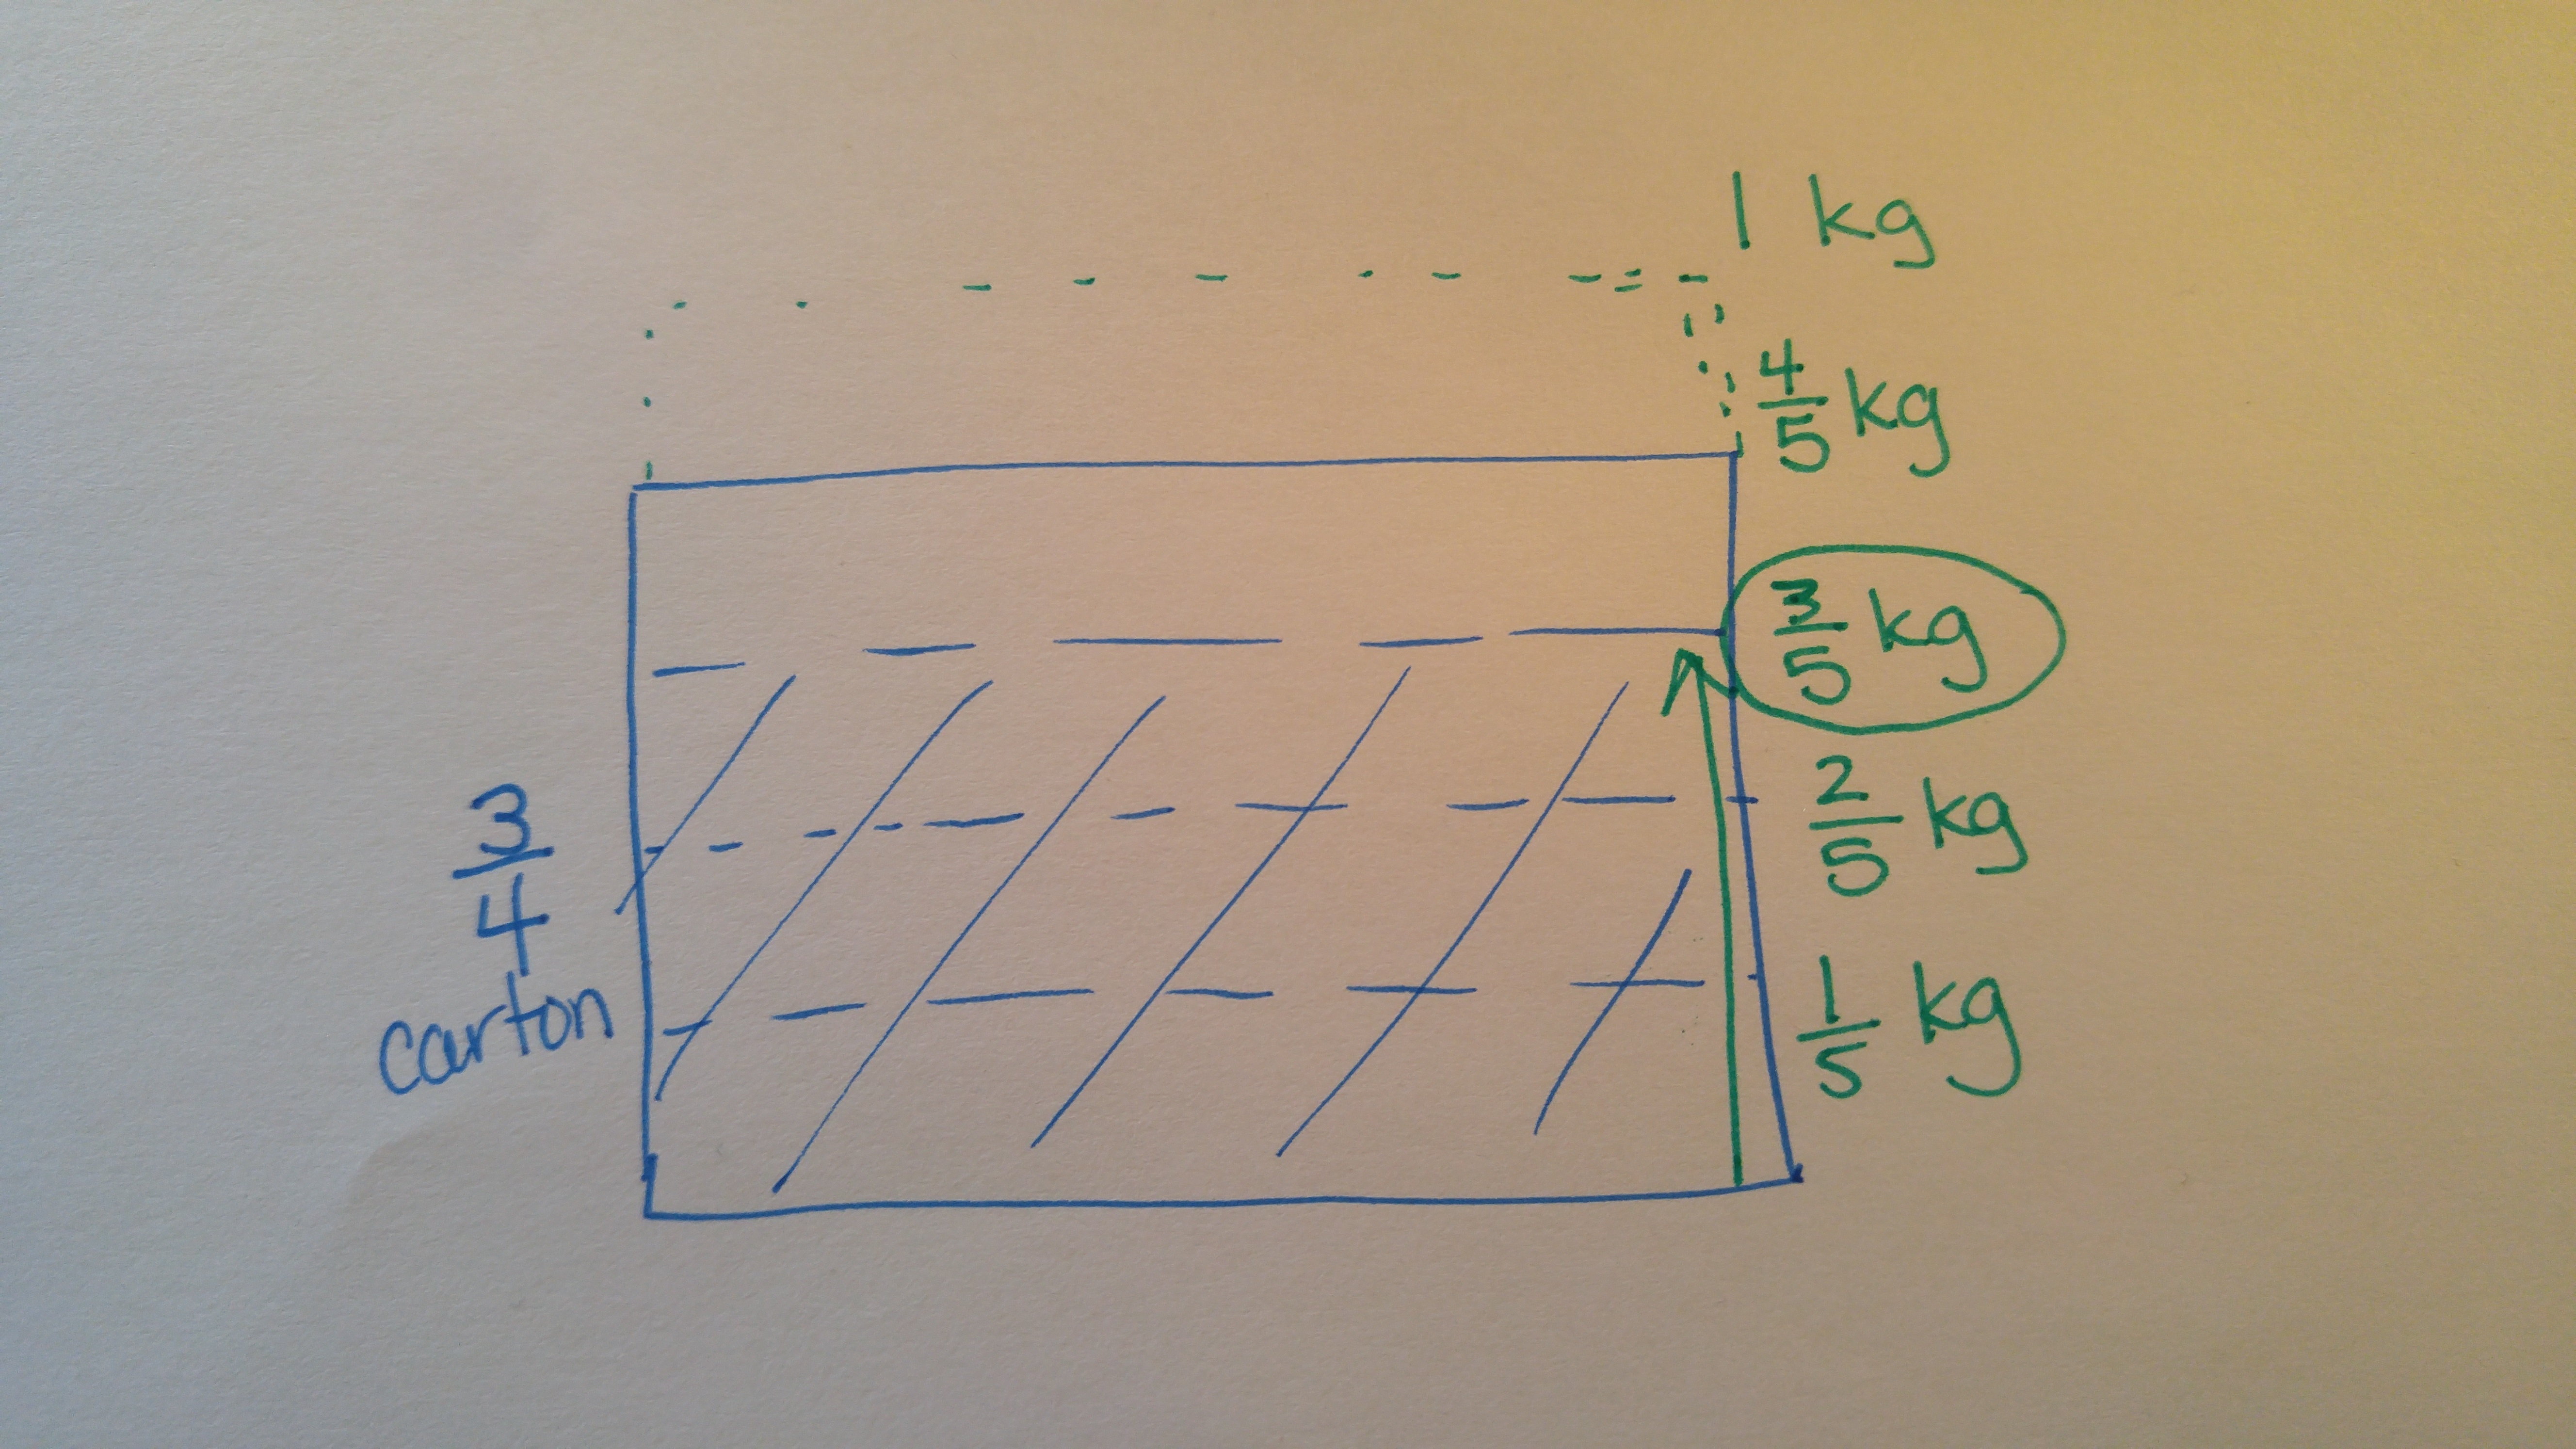 1 kg
4/5 kg
3/5 kg
3/4
carton
2/5 kg
1/5 kg